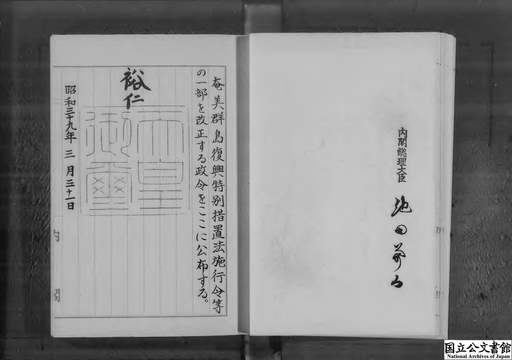 奄美群島復興特別措置法施行令等
の一部を改正する政令をここに公布する。
裕仁
天皇
御璽
昭和三十九年三月三十一日
内閣
内閣総理大臣
池田勇人
国立公文書館
National Archives of Japan